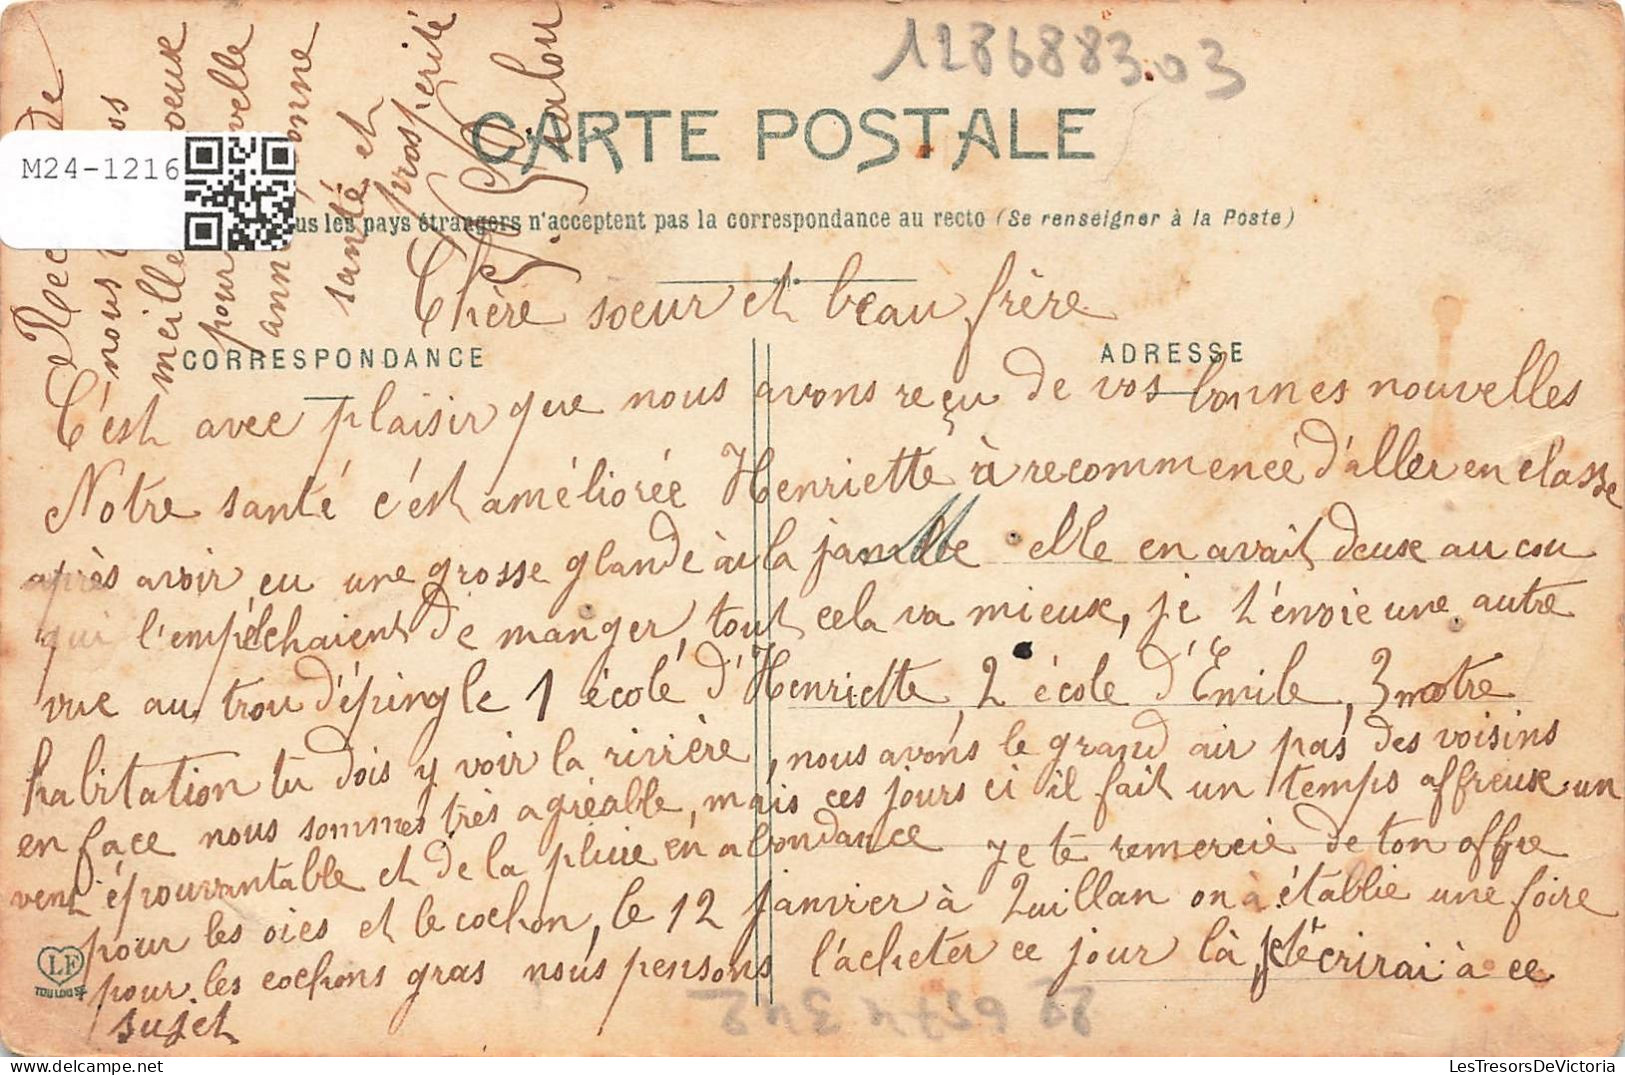 1286883.03
CARTE POSTALE
M24-1216
us les pays étrangers n'acceptent pas la correspondance au recto (Se renseigner à la Poste)
Chère soeur et beau frère
CORRESPONDANCE
ADRESSE
C'est avec plaisir que nous avons reçu de vos bonnes nouvelles
Notre santé c'est améliorée Henriette à recommencé d'aller en classe
après avoir eu une grosse glande à la jambe elle en avait deux au cou
qui l'empêchaient de manger, tout cela va mieux, je t'envoie une autre
vue au trou d'épingle 1 école d'Henriette, 2 école d'Emile, 3 notre
habitation tu dois y voir la rivière, nous avons le grand air pas des voisins
en face nous sommes très agréable, mais ces jours ci il fait un temps affreux un
vent épouvantable et de la pluie en abondance je te remercie de ton offre
pour les oies et le cochon, le 12 janvier à Quillan on à établie une foire
pour les cochons gras nous pensons l'acheter ce jour là, je t'écrirai à ce
sujet
nous
meille voeux
pour velle
année bonne
santé et
prospérité
LF
TOULOUSE
LesTresorsDeVictoria